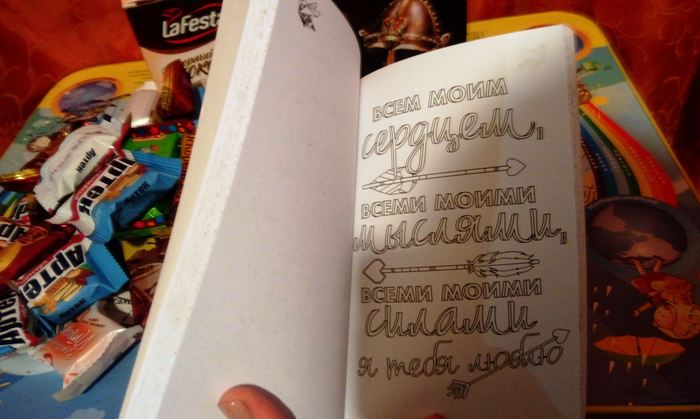 LaFesta
ВСЕМ МОИМ
сердцем,
ВСЕМИ МОИМИ
мыслями,
ВСЕМИ МОИМИ
силами
я тебя люблю
Артек
Артек